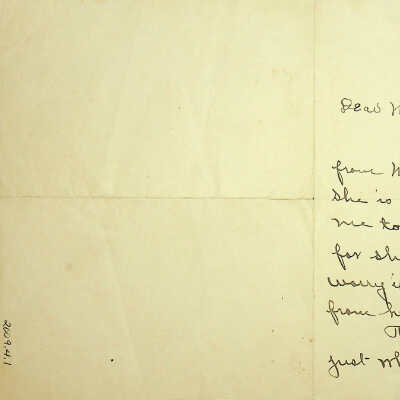 Dear M
from M
She is
me to
for sh
worry i
from h
Th
just wh
2009.4.1